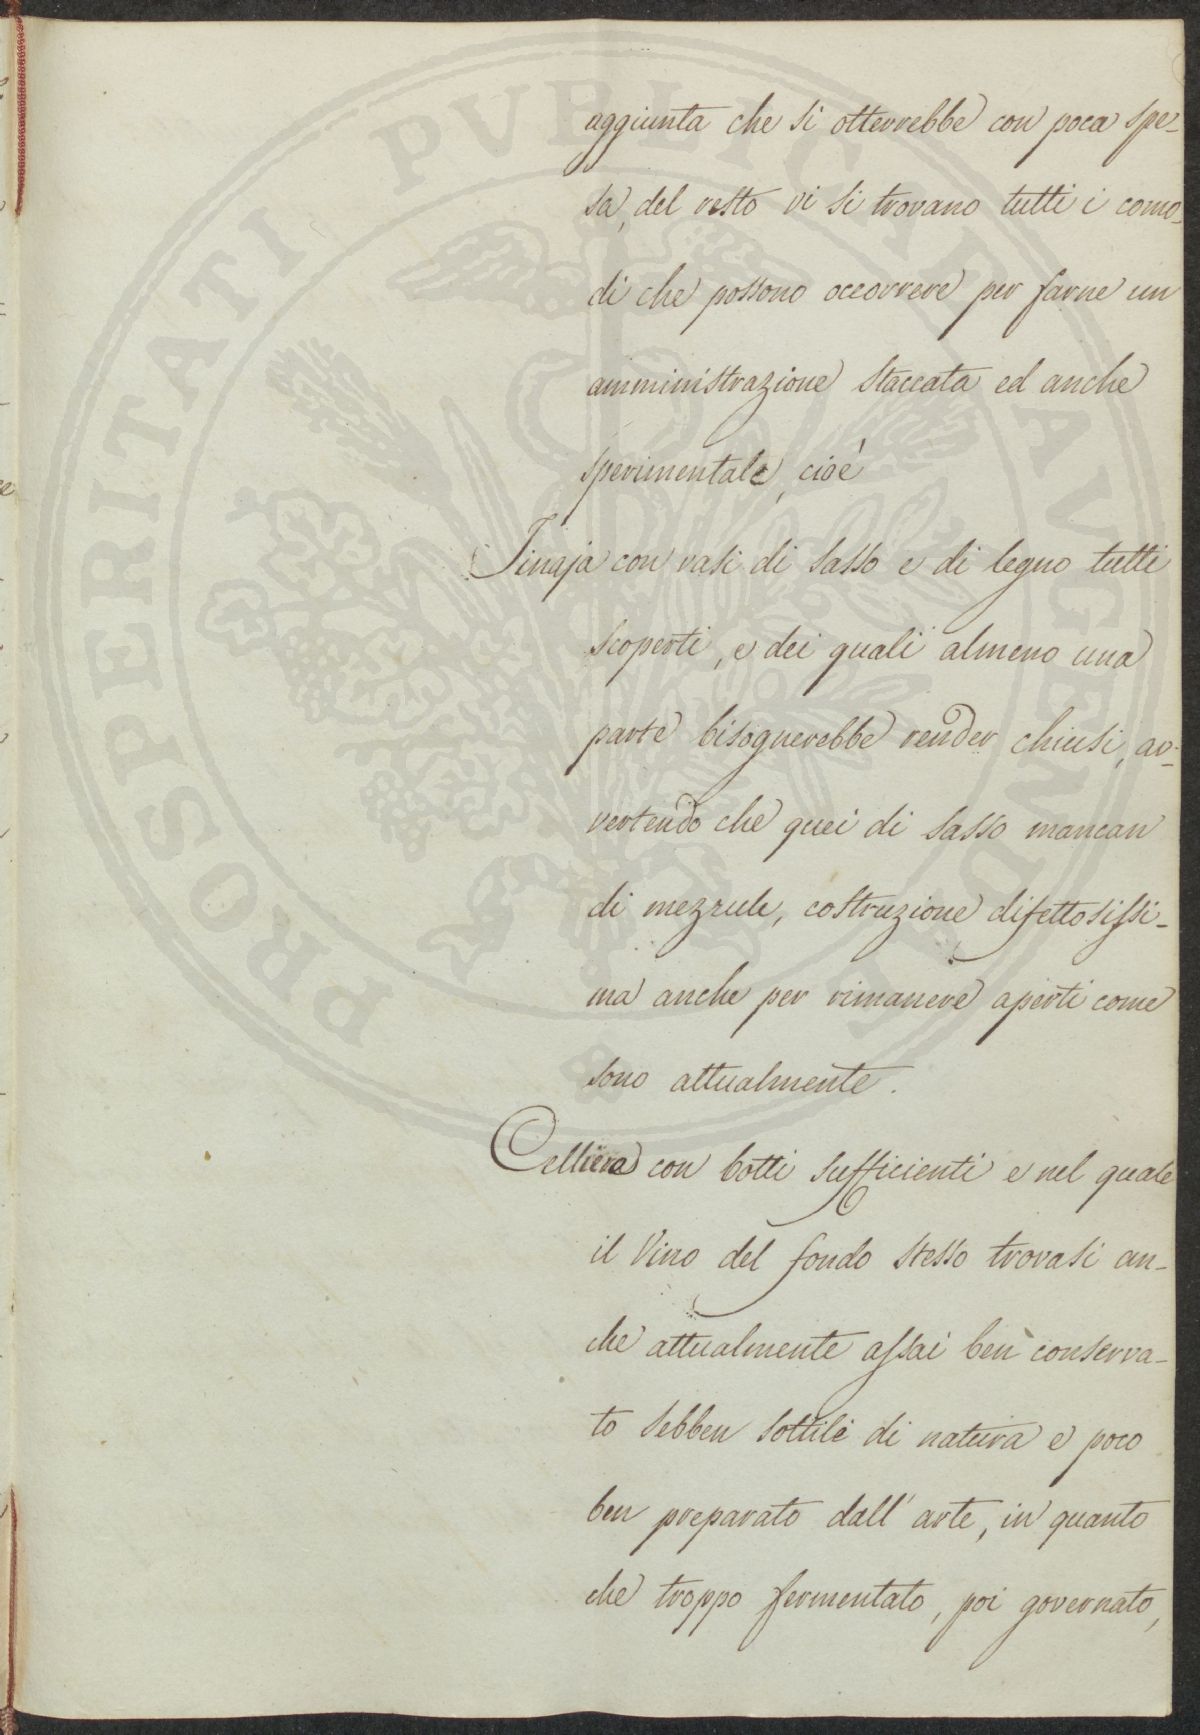 aggiunta che si otterrebbe con poca spe-
sa, del resto vi si trovano tutti i como-
di che possono occorrere per farne un
amministrazione staccata ed anche
sperimentale, cioè
Tinaja con vasi di sasso e di legno tutti
scoperti, e dei quali almeno una
parte bisognerebbe render chiusi, av-
vertendo che quei di sasso mancan
di mezzule, costruzione difettosissi-
ma anche per rimanere aperti come
sono attualmente.
Celliera con botti sufficienti e nel quale
il Vino del fondo stesso trovasi an-
che attualmente assai ben conserva-
to sebben sottile di natura e poco
ben preparato dall'arte, in quanto
che troppo fermentato, poi governato,
PROSPERITATI PVBLICAE AVGENDAE